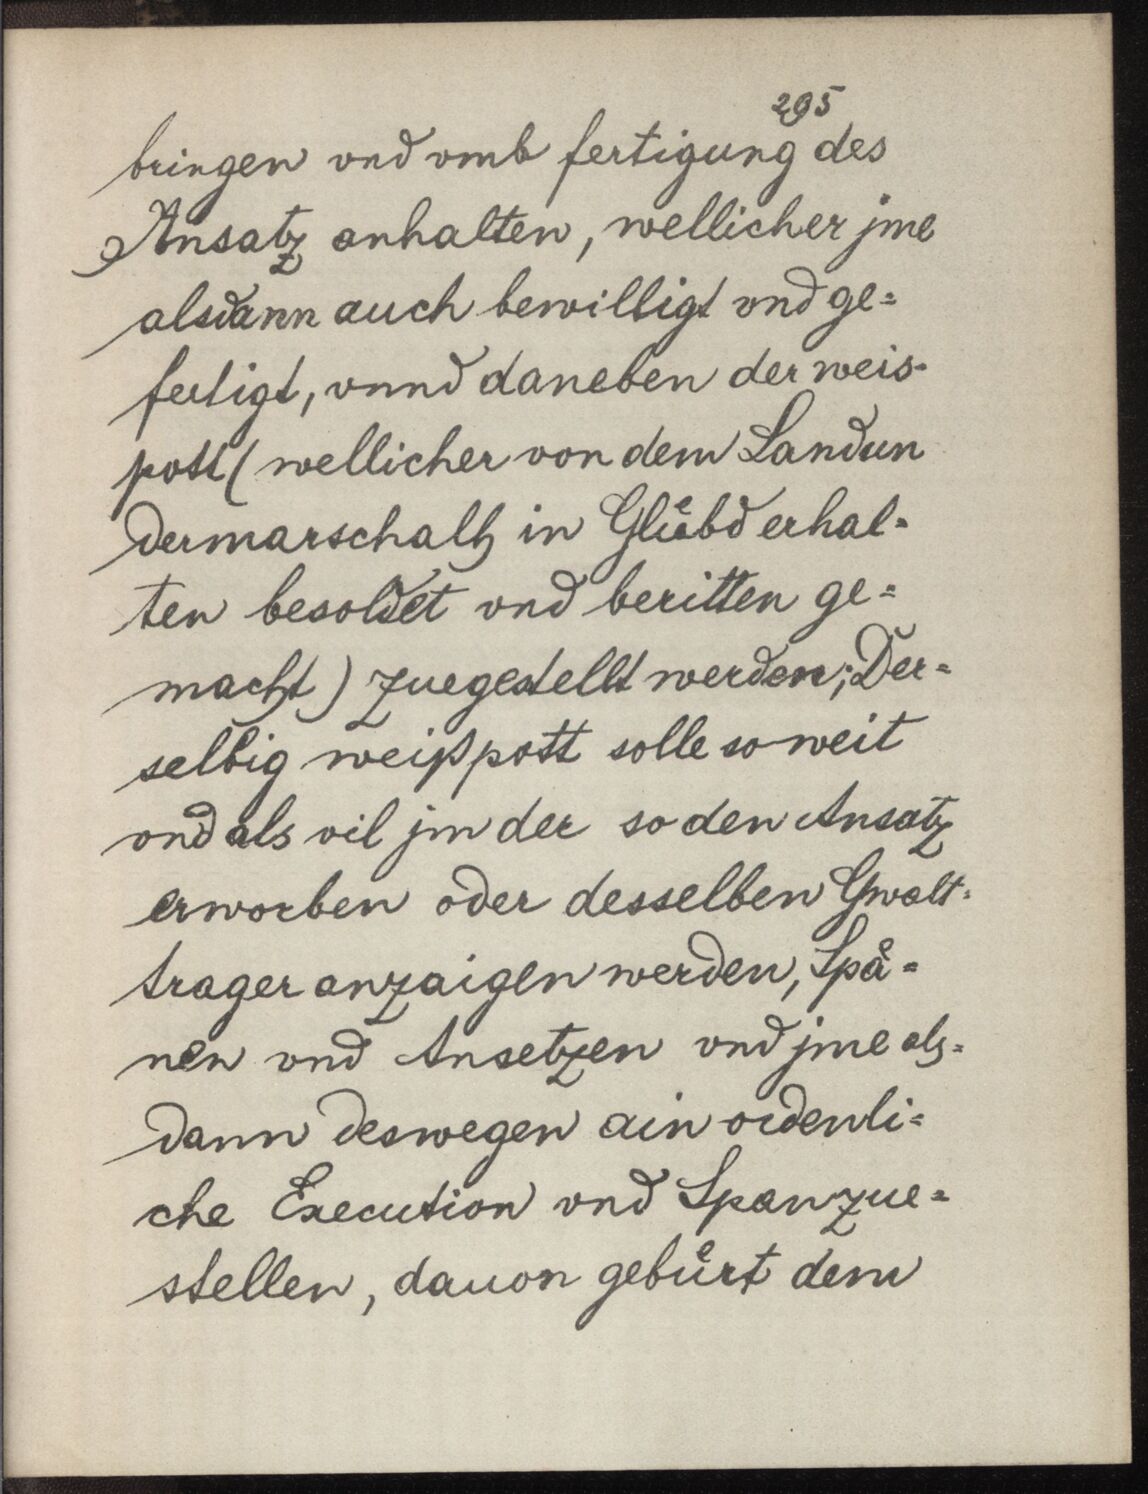 295
bringen vnd vmb fertigung des
Ansatz anhalten, wellicher jme
alsdann auch bewilligt vnd ge=
fertigt, vnnd daneben der weis=
pott (wellicher von dem Landun
dermarschalh in Glübd erhal=
ten besoldet vnd beritten ge=
macht) zuegestellt werden; Der=
selbig weißpott solle so weit
vnd als vil jm der so den Ansatz
erworben oder desselben Gwalt=
trager anzaigen werden, Spå=
nen vnd Ansetzen vnd jme als=
dann deswegen ain ordenli=
che Execution vnd Span zue=
stellen, dauon gebürt dem